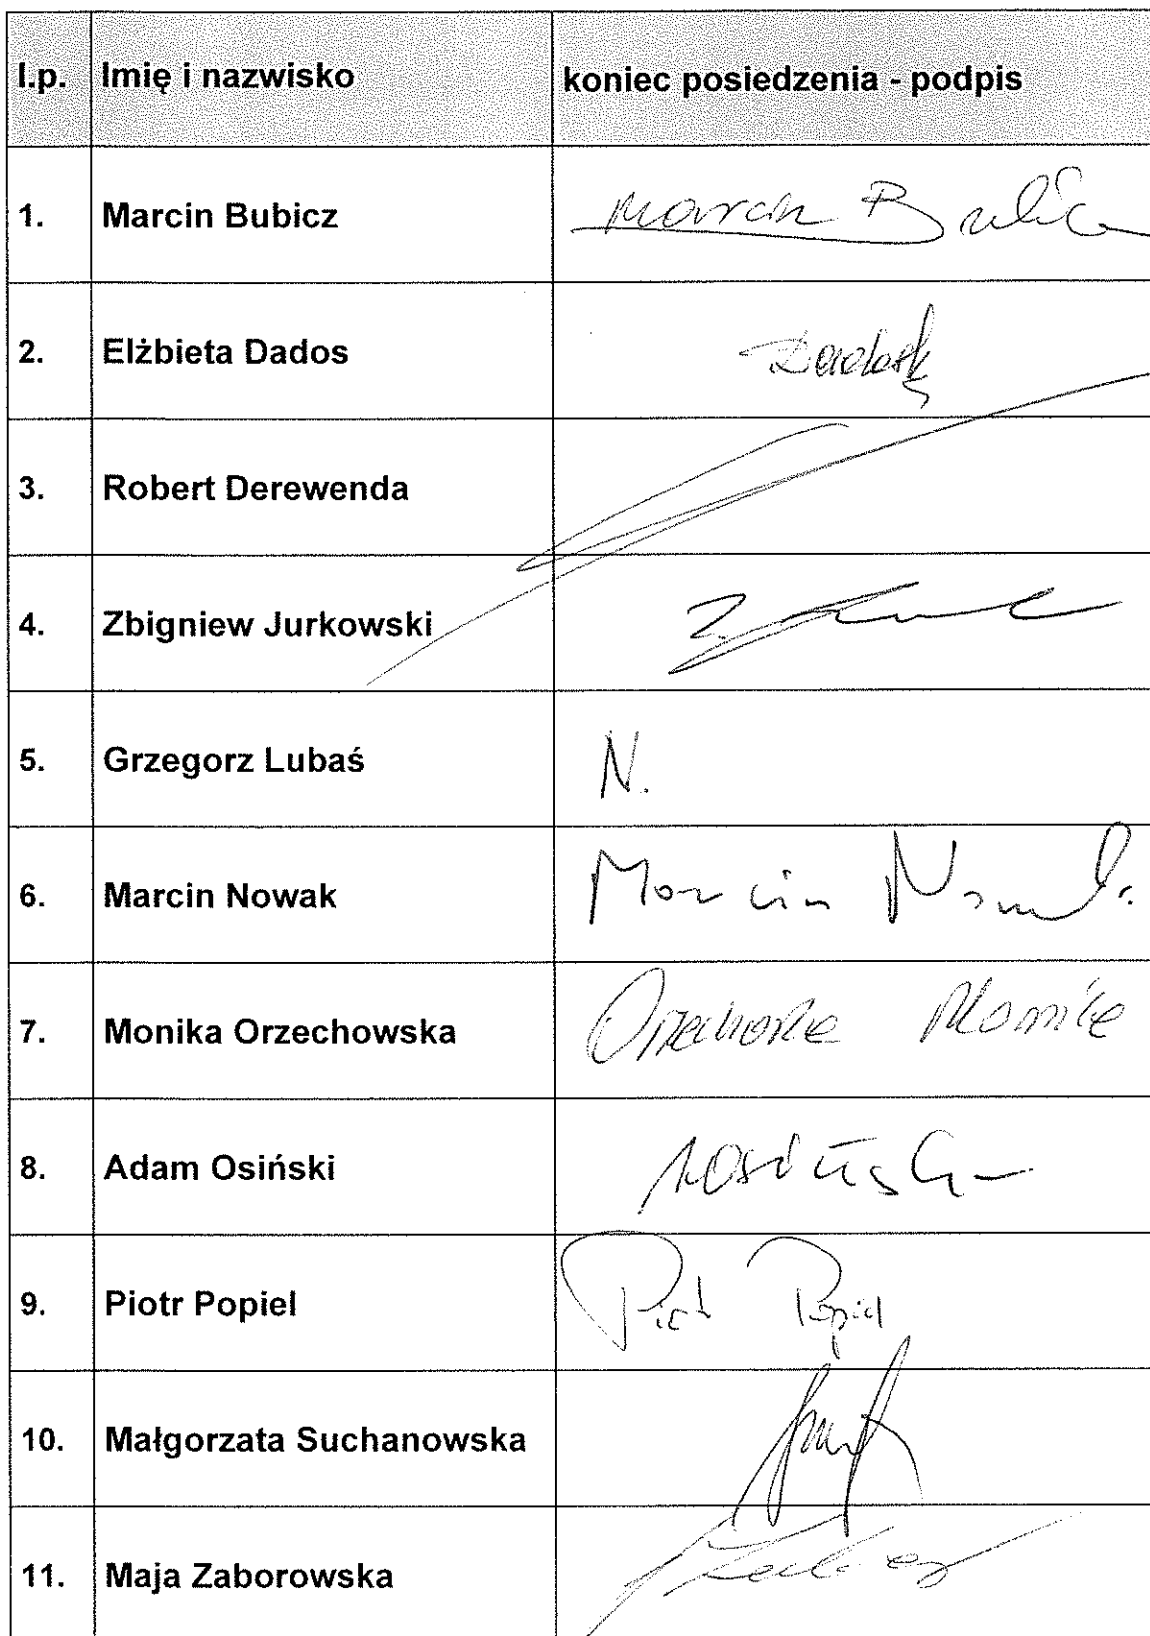 l.p. Imię i nazwisko koniec posiedzenia - podpis
1. Marcin Bubicz Marcin Bubicz
2. Elżbieta Dados
3. Robert Derewenda
4. Zbigniew Jurkowski
5. Grzegorz Lubaś N.
6. Marcin Nowak Marcin Nowak
7. Monika Orzechowska Orzechowska Monika
8. Adam Osiński
9. Piotr Popiel Piotr Popiel
10. Małgorzata Suchanowska
11. Maja Zaborowska